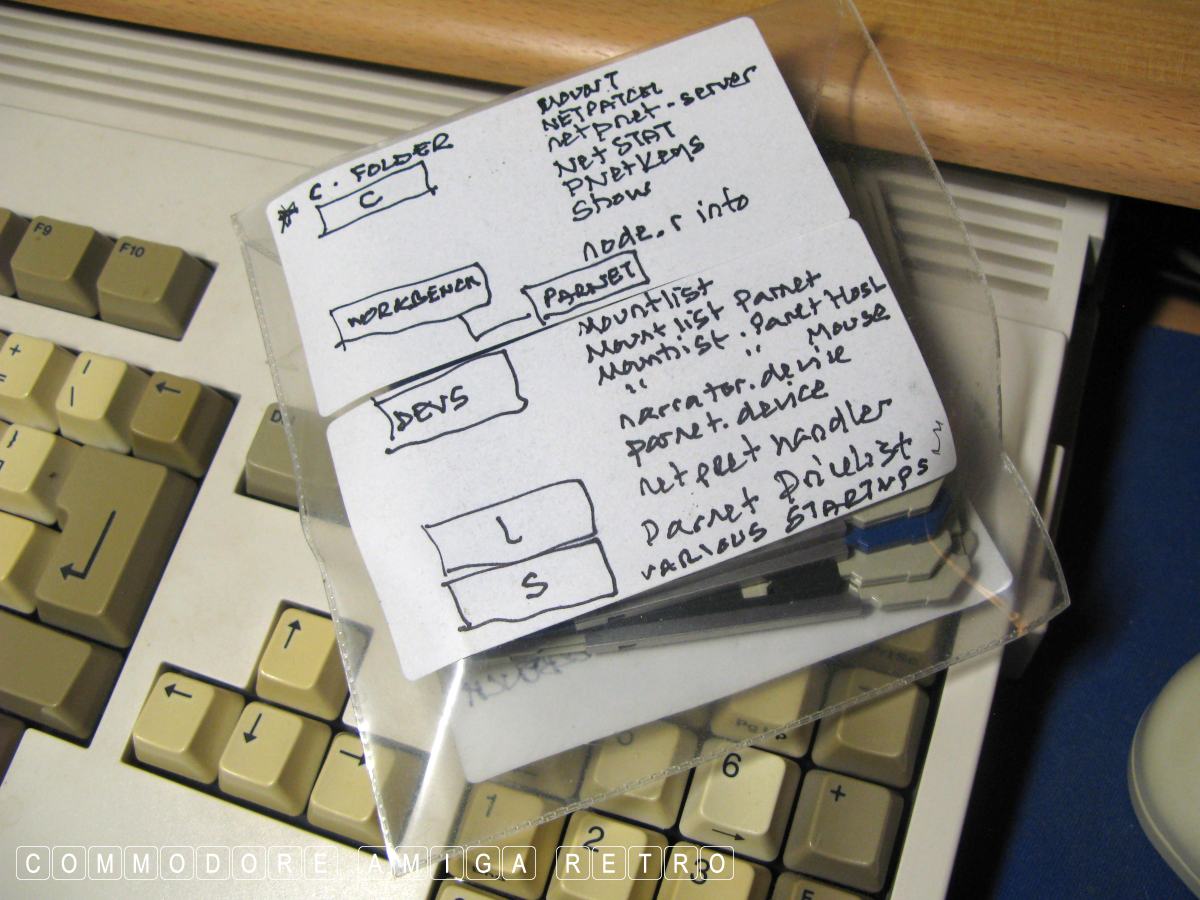 C. FOLDER
* C
MOUNT
NETPATCH
netpnet-server
NetSTAT
PNetKeys
Show
node.r info
WORKBENCH
PARNET
DEVS
Mountlist
Mountlist Parnet
Mountlist.ParnetHost
" " Mouse
narrator.device
parnet.device
L
netpnet handler
S
Parnet Drivelist
VARIOUS STARTUPS
F9
F10
+
=
|
\
←
}
]
D
↑
←
↓
→
PGUP
1
2
3
6
→
+
COMMODORE AMIGA RETRO